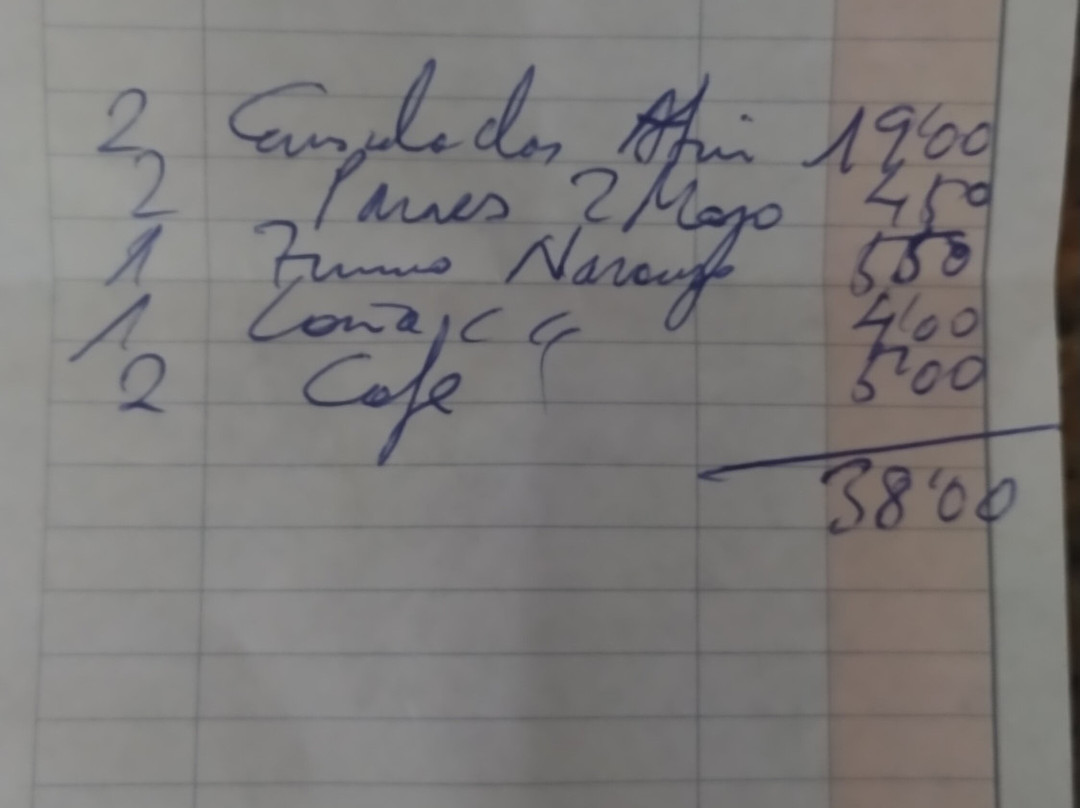 2 Ensaladas Atún 19'00
2 Panes 2 Mojo 4 50
1 Zumo Naranja 5 50
1 Caña, 4'00
2 Cafe 5'00
38'00